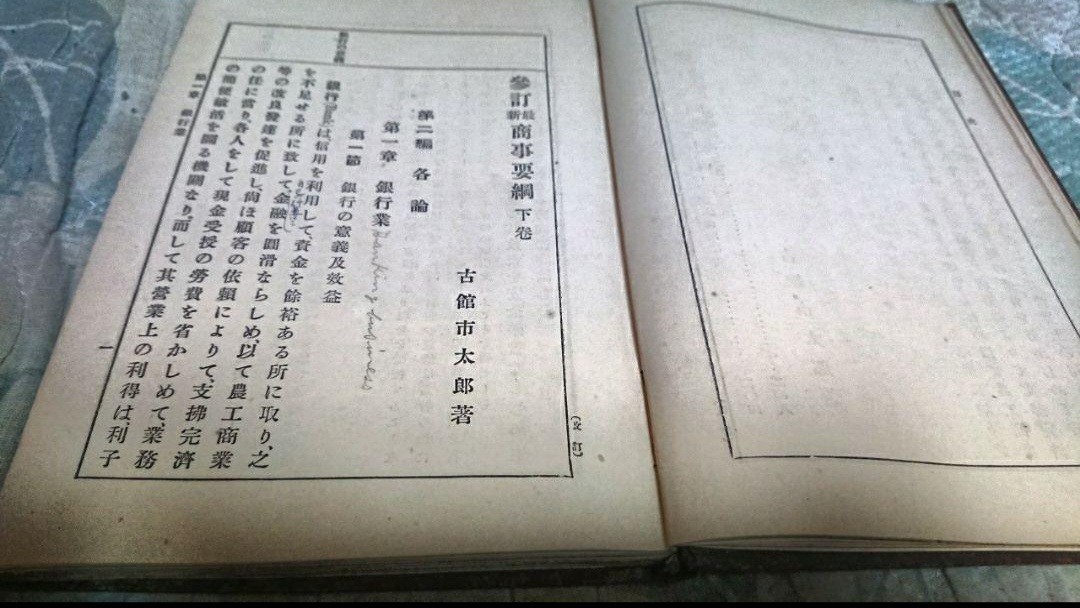 參訂最新商事要綱 下卷
古館市太郎著
第二編 各論
第一章 銀行業 Banking business
第一節 銀行の意義及效益
銀行は、信用を利用して、資金を餘裕ある所に取り、之
を不足せる所に致して、金融を圓滑ならしめ、以て農工商業
等の改良發達を促進し、尙ほ顧客の依賴によりて、支拂完濟
の任に當り、各人をして現金受授の勞費を省かしめて、業務
の簡便敏活を圖る機關なり、而して其營業上の利得は、利子
第一章 銀行業
一
(改訂)